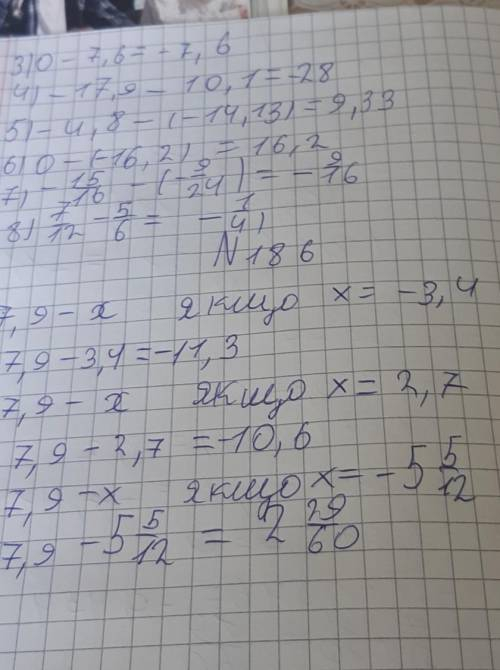 3) 0 - 7,6 = -7,6
4) -17,9 - 10,1 = -28
5) -4,8 - (-14,13) = 9,33
6) 0 - (-16,2) = 16,2
7) -15/16 - (-9/24) = -9/16
8) 7/12 - 5/6 = -1/4)
N 186
7,9 - x якщо x = -3,4
7,9 - 3,4 = -11,3
7,9 - x якщо x = 2,7
7,9 - 2,7 = -10,6
7,9 - x якщо x = -5 5/12
7,9 - 5 5/12 = 2 29/60